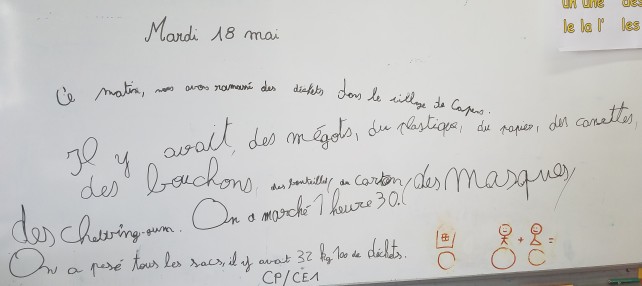 un une des
le la l' les
Mardi 18 mai
Ce matin, nous avons ramassé des déchets dans le village de Capens.
Il y avait, des mégots, du plastique, du papier, des canettes,
des bouchons, des bouteilles, du carton, des masques,
des chewing-gum. On a marché 1 heure 30.
On a pesé tous les sacs, il y avait 32 kg 100 de déchets.
CP/CE1
+ =